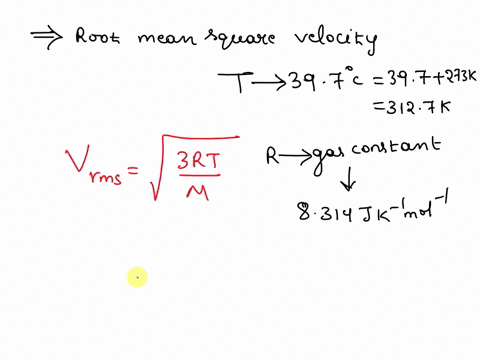 ⇒ Root mean square velocity
T → 39.7°c = 39.7+273K
= 312.7 K
V rms = √(3RT/M)
R → gas constant
↓
8.314 J K⁻¹ mol⁻¹